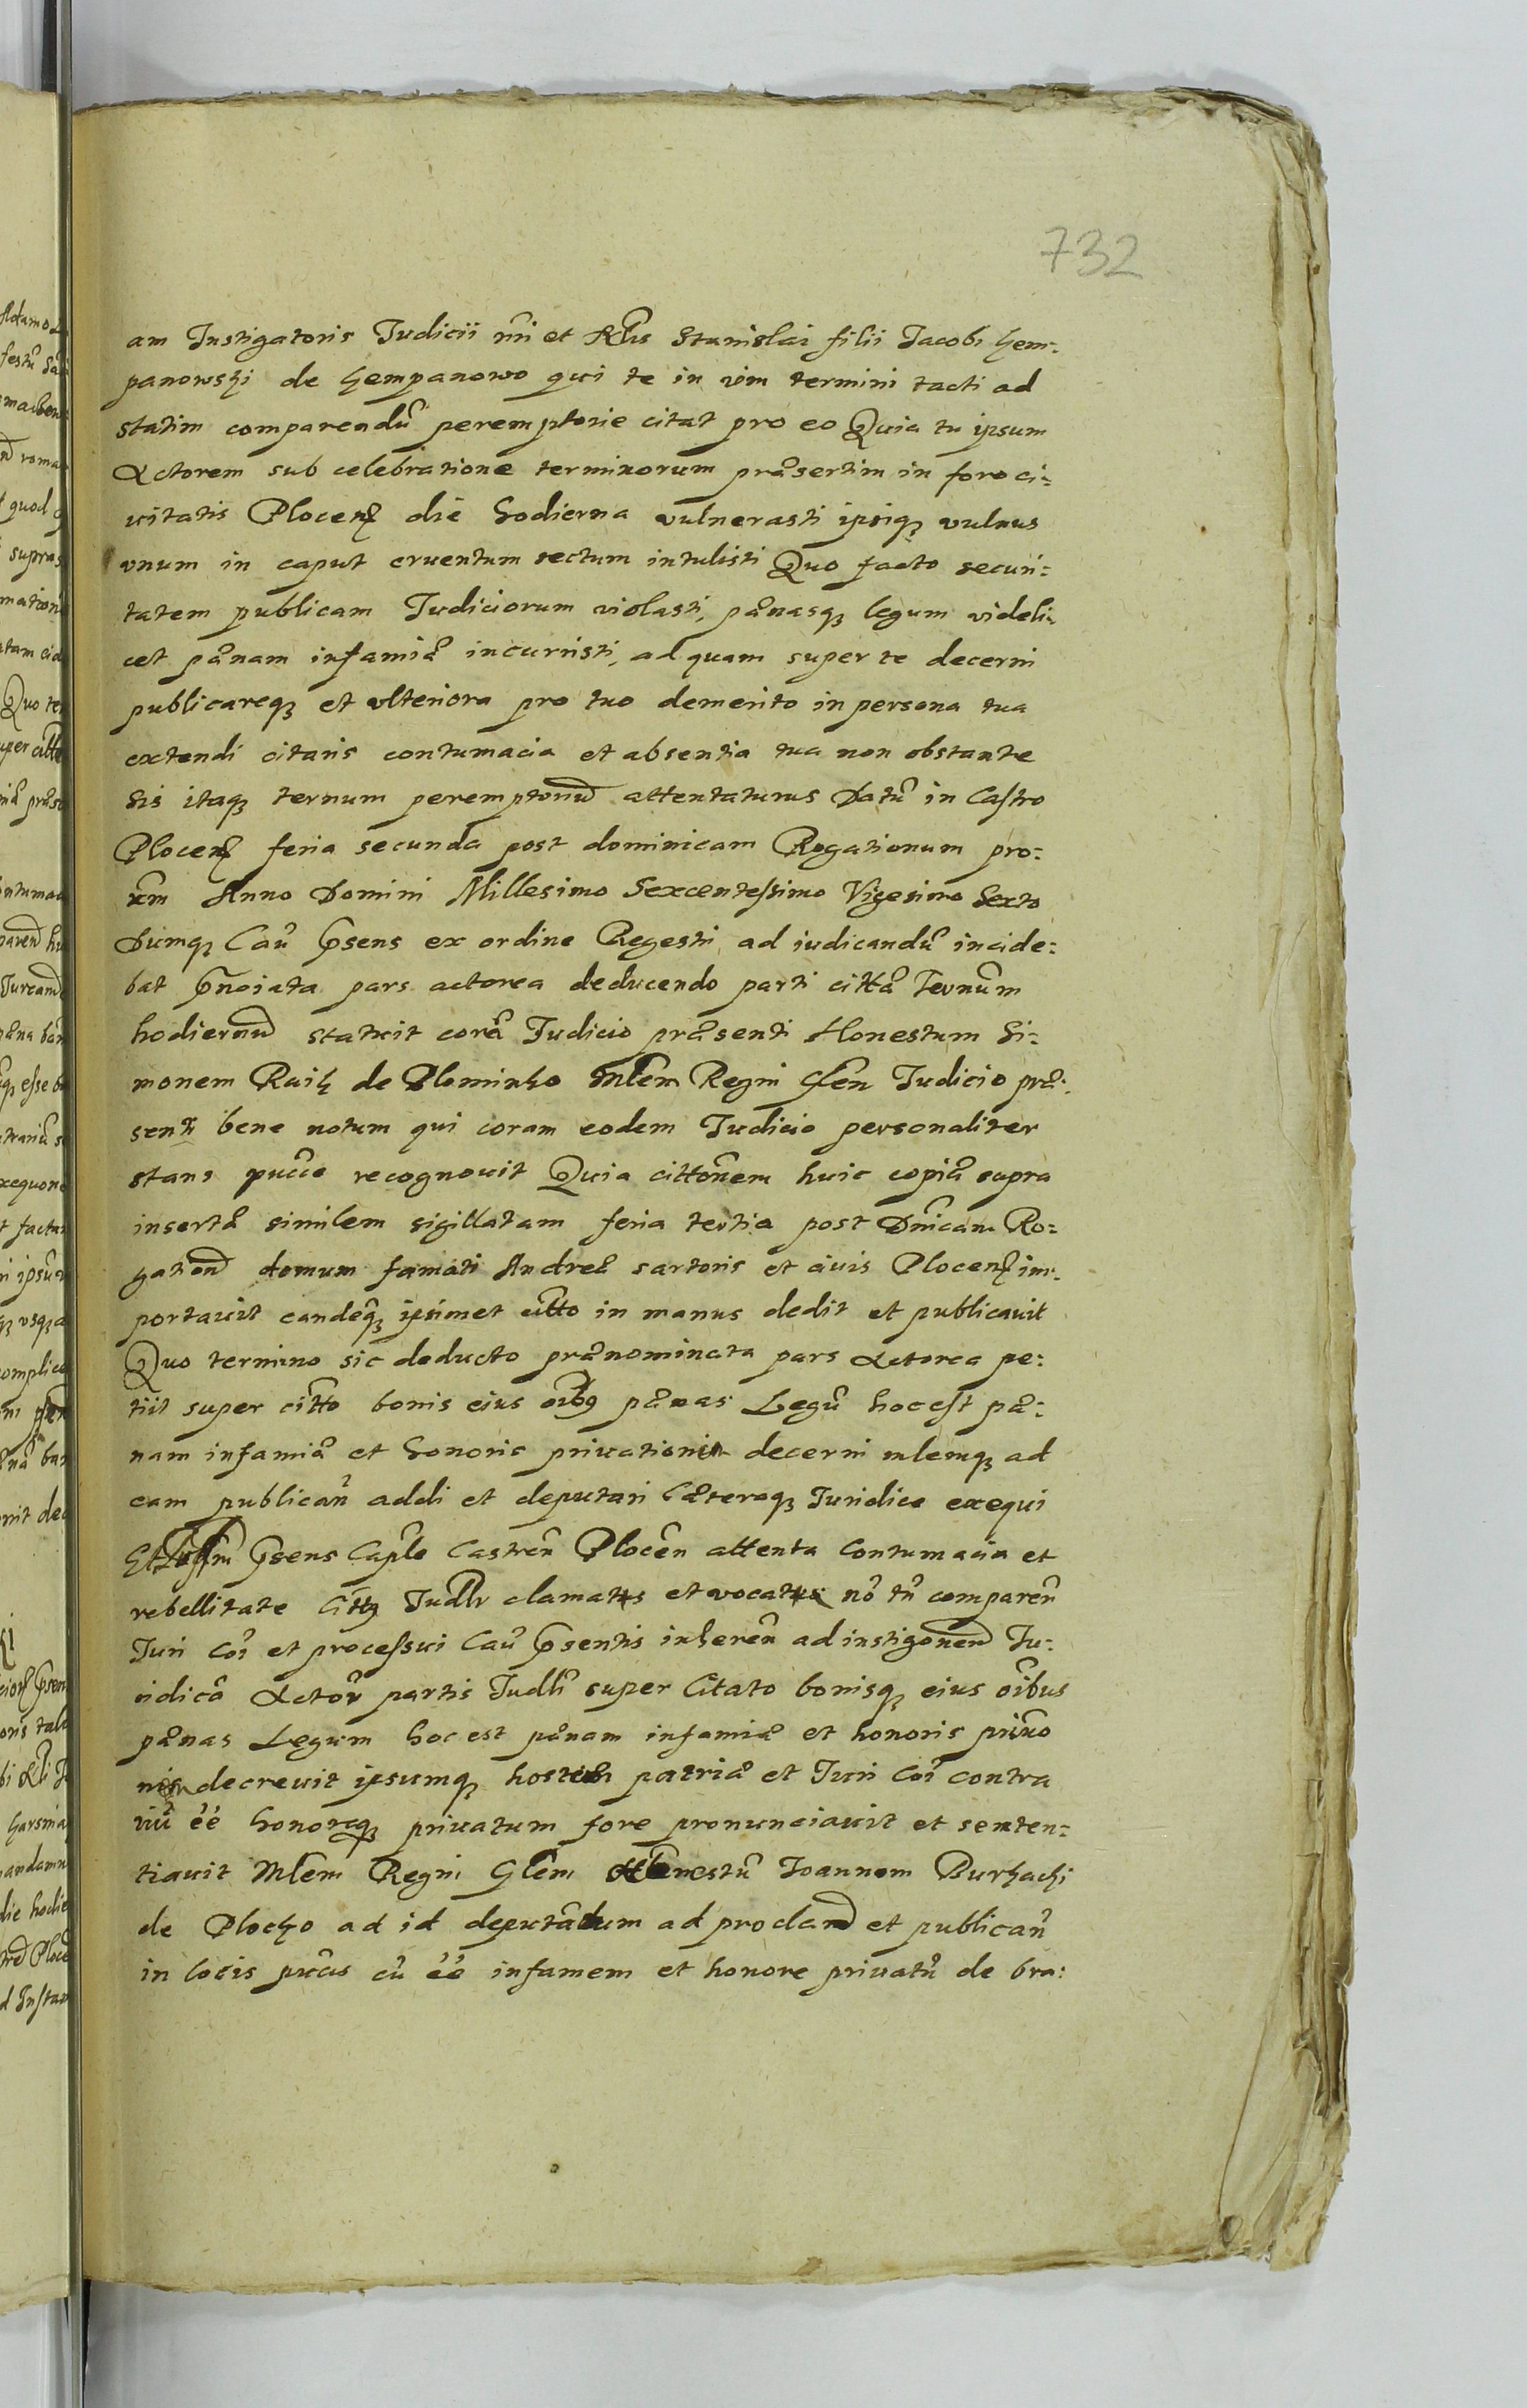 732
am Instigatoris Judicii nri et Nlis Stanislai filii Jacobi Hem:
panowski de Hempanowo qui te in vim termini tacti ad
statim comparendũ peremptorie citat pro eo Quia tu ipsum
Actorem sub celebratione terminorum præsertim in foro ci:
uitatis Plocen̄ die hodierna vulnerasti ipsiq3 vulnus
vnum in caput cruentum sectum intulisti Quo facto securi:
tatem publicam Judiciorum violasti, pænasq3 legum videli:
cet pænam infamiæ incurristi, ad quam super te decerni
publicareq3 et vlteriora pro tuo demerito in persona tua
extendi citaris contumacia et absentia tua non obstante
Sis itaq3 ternum peremptoriũ attentaturus Datũ in Castro
Plocen̄ feria secunda post dominicam Rogationum pro:
xm Anno Domini Millesimo Sexcentessimo Vigesimo Sexto
Dumq3 Cau͂ p̃sens ex ordine Regesti ad iudicandũ incide:
bat p̃noiata pars actorea deducendo parti cittæ Ternũm
hodiernũ statuit corã Judicio præsenti Honestum Si:
monem Raik de Plominko Mlem̃ Regni Glem̃ Judicio præ:
senti bene notum qui coram eodem Judicio personaliter
stans pucce recognouit Quia cittonem huic copiæ supra
insertæ similem sigillatam feria tertia post Dnicam Ro:
gationũ domum famati Andreæ sartoris et ciuis Plocen̄ im:
portauit eandeq3 ipsimet citto in manus dedit et publicauit
Quo termino sic deducto prænominata pars Actorea pe:
tiit super citto bonis eius oibq pænas Legũ hoc est pæ:
nam infamiæ et honoris priuationis decerni mlemq3 ad
eam publican̄ addi et deputari Cæteraq3 Juridice exequi
Et p̃sens Caplle Castren̄ Plocen̄ attenta Contumacia et
rebellitate Cittq Judlr clamati et vocati nõ tñ comparen̄
Juri Coi et processui Cau͂ p̃sentis inheren̄ ad instigonem Ju:
ridicã Actor̃ partis Judlr super Citato bonisq3 eius oibus
pænas Legum hoc est pænam infamiæ et honoris priuao
nis decreuit ipsumq3 hostem patriæ et Juri Coi contra
riũ ẽe honoreq3 priuatum fore pronunciauit et senten:
tiauit Mlem̃ Regni Glem̃ Honestũ Joannem Burkacki
de Plocko ad id deputãdum ad proclanđ et publican̄
in locis pucis eũ ẽe infamem et honore priuatũ de bra: